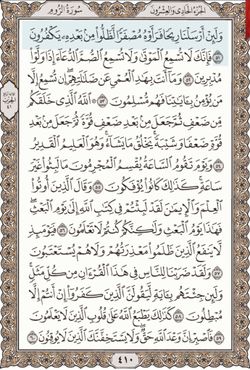 الجزء الحادي والعشرون
سورة الروم
ولئن أرسلنا ريحا فرأوه مصفرا لظلوا من بعده يكفرون
٥١ فإنك لا تسمع الموتى ولا تسمع الصم الدعاء إذا ولوا
مدبرين ٥٢ وما أنت بهاد العمي عن ضلالتهم إن تسمع إلا
من يؤمن بآياتنا فهم مسلمون ٥٣ الله الذي خلقكم
من ضعف ثم جعل من بعد ضعف قوة ثم جعل من بعد
قوة ضعفا وشيبة يخلق ما يشاء وهو العليم القدير
٥٤ ويوم تقوم الساعة يقسم المجرمون ما لبثوا غير
ساعة كذلك كانوا يؤفكون ٥٥ وقال الذين أوتوا
العلم والإيمان لقد لبثتم في كتاب الله إلى يوم البعث
فهذا يوم البعث ولكنكم كنتم لا تعلمون ٥٦ فيومئذ
لا ينفع الذين ظلموا معذرتهم ولا هم يستعتبون
٥٧ ولقد ضربنا للناس في هذا القرآن من كل مثل
ولئن جئتهم بآية ليقولن الذين كفروا إن أنتم إلا
مبطلون ٥٨ كذلك يطبع الله على قلوب الذين لا يعلمون
٥٩ فاصبر إن وعد الله حق ولا يستخفنك الذين لا يوقنون ٦٠
٤١٠